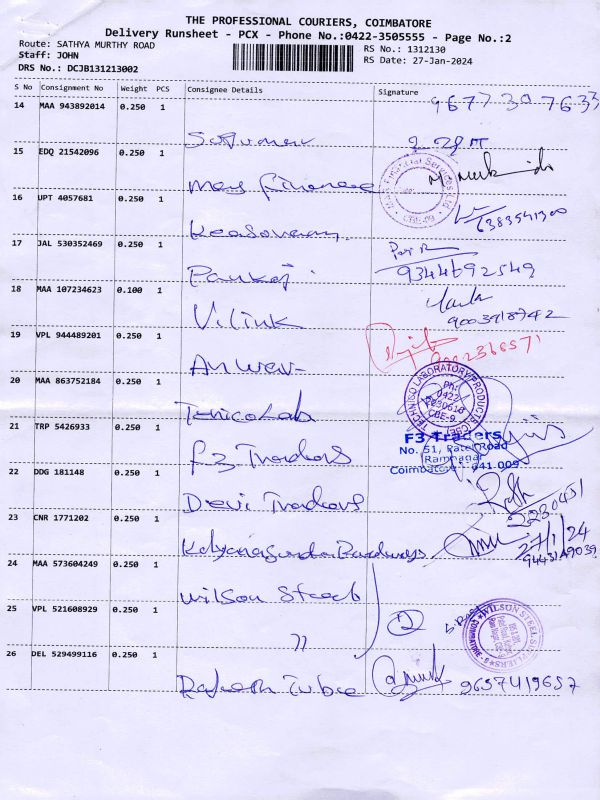 THE PROFESSIONAL COURIERS, COIMBATORE
Delivery Runsheet - PCX - Phone No.:0422-3505555 - Page No.:2
Route: SATHYA MURTHY ROAD
RS No.: 1312130
Staff: JOHN
RS Date: 27-Jan-2024
DRS No.: DCJB131213002
S No Consignment No Weight PCS Consignee Details Signature
14 MAA 943892014 0.250 1
15 EDQ 21542096 0.250 1
Mars Finance
16 UPT 4057681 0.250 1
6383541300
17 JAL 530352469 0.250 1
Pankaj 9344692549
18 MAA 107234623 0.100 1
V.Link
19 VPL 944489201 0.250 1
Anwar
20 MAA 863752184 0.250 1
TECHNICO LABORATORY PRODUCTS (CBE)
Ph: 0422
CBE-9.
21 TRP 5426933 0.250 1
F3 Traders
F3 Traders
No. 51, Patel Road
Ramnagar
Coimbatore - 641 009
22 DDG 181148 0.250 1
Devi Traders
2230451
23 CNR 1771202 0.250 1
27/1/24
24 MAA 573604249 0.250 1
Wilson Steel
25 VPL 521608929 0.250 1
"
②
WILSON STEEL SUPPLIERS
26 DEL 529499116 0.250 1
Rakesh Tube 9657419657